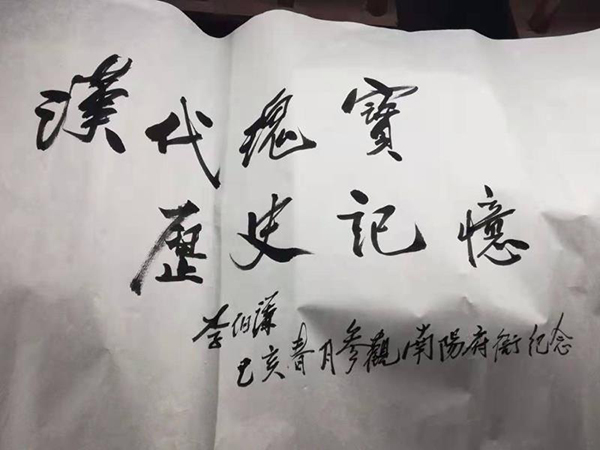 漢代瑰寶
歷史記憶
李伯謙
己亥春月參觀南陽府衙紀念